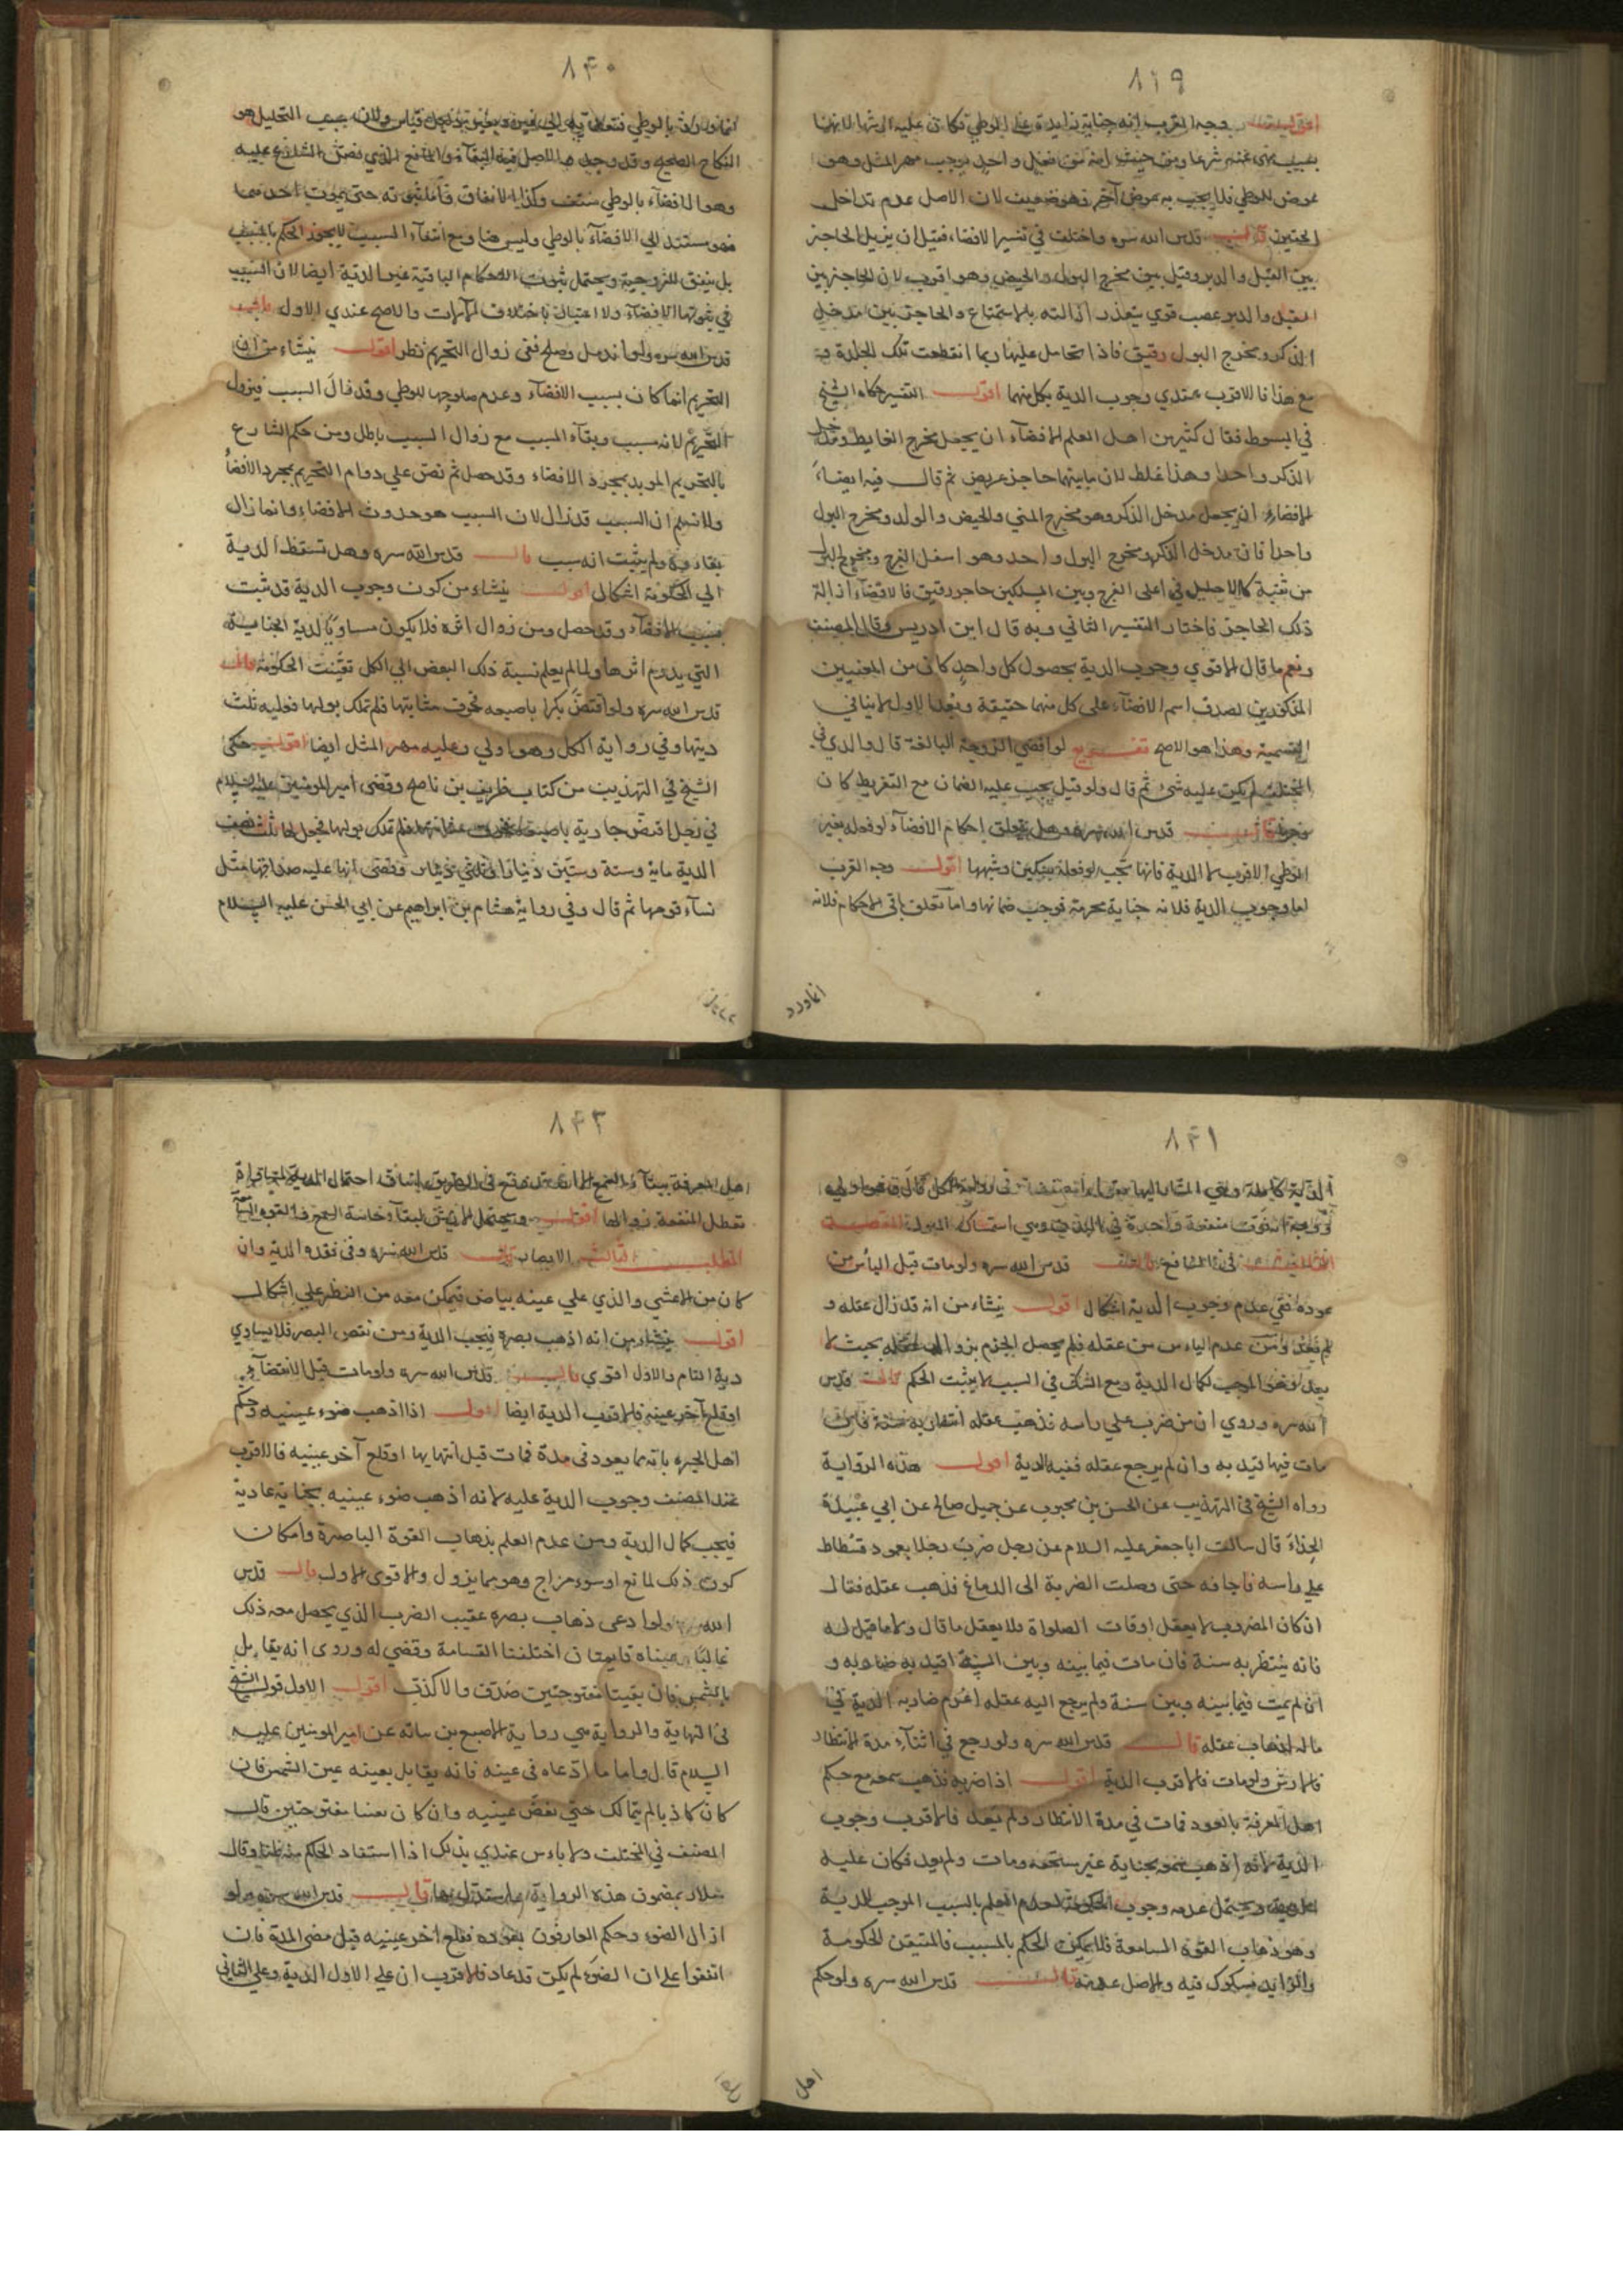 ٨٣٩
اقول وجه القرب انه جناية زايدة على الوطي فكان عليه ارشها لانها
بسبب منهي عنه شرعا ومن حيث انه من فعل واحد يوجب مهر المثل وهو
عوض الوطي فلا يجب به عوض آخر وهو ضعيف لان الاصل عدم تداخل
الحقين قال قدس الله سره واختلف في تفسير الافضاء فقيل ان يزيل الحاجز
بين القبل والدبر وقيل بين مخرج البول والحيض وهو اقرب لان الحاجز بين
القبل والدبر عصب قوي يتعذر ازالته بالاستمتاع والحاجز بين مدخل
الذكر ومخرج البول رقيق فاذا تحامل عليها ربما انقطعت تلك الجلدة و
مع هذا فالاقرب عندي وجوب الدية بكل منهما اقول التفسير حكاه الشيخ
في المبسوط فقال كثير من اهل العلم الافضاء ان يجعل مخرج الغايط ومدخل
الذكر واحدا وهذا غلط لان ما بينهما حاجز عريض ثم قال فيه ايضاء
الافضاء ان يجعل مدخل الذكر وهو مخرج المني والحيض والولد ومخرج البول
واحدا فان مدخل الذكر ومخرج البول واحد وهو اسفل الفرج ومخرج البول
من ثقبة كالاحليل في اعلى الفرج وبين المسلكين حاجز رقيق فالافضاء ازالة
ذلك الحاجز فاختار التفسير الثاني وبه قال ابن ادريس وقال المصنف
ونعم ما قال الاقوي وجوب الدية بحصول كل واحد كان من المعنيين
المذكورين لصدق اسم الافضاء على كل منهما حقيقة وبعد الاول لا ينافي
التسمية وهذا هو الاصح تفريع لو افضى الزوجة البالغة قال والدي في
المختلف لم يكن عليه شئ ثم قال ولو قيل يجب عليه الضمان مع التفريط كان
وجها قال قدس الله سره وهل يتعلق احكام الافضاء لو فعله بغير
الوطي الاقرب لا الدية فانها تجب لو فعله بسكين وشبهها اقول وجه القرب
اما وجوب الدية فلانه جناية محرمة فوجب ضمانها واما تعلق باقي الاحكام فلانه
انما ورد
٨٤٠
انما ورد بالوطي فتعلقه الى غيره قياس ولان سبب التحليل هو
النكاح الصحيح وقد وجد والاصل فيه البقاء والمانع الذي نص الشارع عليه
وهو الافضاء بالوطي منتف وكذا الانفاق فاما ثبوته حتى يموت احدهما
فهو مستند الى الافضاء بالوطي وليس هنا ومع انتفاء السبب لا يجوز الحكم بالمسبب
بل ينفق للزوجية ويحتمل ثبوت الاحكام الباقية غير الدية ايضا لان السبب
في ثبوتها الافضاء ولا اعتبار باختلاف الآلات والاصح عندي الاول قال
قدس الله سره ولو اندمل وصلح ففي زوال التحريم نظر اقول ينشاء من ان
التحريم انما كان بسبب الافضاء وعدم صلوحها للوطي وقد زال السبب فيزول
التحريم لانه مسبب وبقاء المسبب مع زوال السبب باطل ومن حكم الشارع
بالتحريم المويد بمجرد الافضاء وقد حصل ثم نص علي دوام التحريم بمجرد الافضاء
ولا نسلم ان السبب قد زال لان السبب هو حدوث الافضاء وانما زال
بقاوه ولم يثبت انه سبب قال قدس الله سره وهل تسقط الدية
الى الحكومة اشكال اقول ينشاء من كون وجوب الدية قد ثبت
بسبب الافضاء وقد حصل ومن زوال اثره فلا يكون مساويا لدية الجناية
التي يدوم اثرها ولما لم يعلم نسبة ذلك البعض الى الكل تعينت الحكومة قال
قدس الله سره ولو اقتض بكرا باصبعه فخرق مثانتها فلم تملك بولها فعليه ثلث
ديتها وفي رواية الكل وهو اولي وعليه مهر المثل ايضا اقول حكى
الشيخ في التهذيب من كتاب ظريف بن ناصح وقضى امير المومنين عليه السلام
في رجل اقتض جارية باصبعه فخرق مثانتها فلم تملك بولها فجعل لها ثلث نصف
الدية ماية وستة وستين دينارا وثلثي دينار وقضى لها عليه صداقها مثل
نساء قومها ثم قال وفي رواية هشام بن ابراهيم عن ابي الحسن عليه السلام
٨٤١
الدية كاملة وهي المشار اليها بقوله وفي رواية الكل قال وهو اولي
ووجهه انه فوت منفعة واحدة في البدن وهي امساك البول المقصد
الثالث في المنافع قال قدس الله سره ولو مات قبل اليأس من
عوده ففي عدم وجوب الدية اشكال اقول ينشاء من انه قد زال عقله و
لم يعد ومن عدم الياس من عقله فلم يحصل الجزم بزوال عقله بحيث لا
يعد وهو الموجب لكمال الدية ومع الشك في السبب لا يثبت الحكم قال قدس
الله سره وروي ان من ضرب علي راسه فذهب عقله انتظر به سنة فان
مات فيها قيد به وان لم يرجع عقله ففيه الدية اقول هذه الرواية
رواه الشيخ في التهذيب عن الحسن بن محبوب عن جميل صالح عن ابي عبيدة
الحذاء قال سالت ابا جعفر عليه السلام عن رجل ضرب رجلا بعمود فسطاط
علي راسه فاجافه حتى وصلت الضربة الى الدماغ فذهب عقله فقال
ان كان المضروب لا يعقل اوقات الصلواة ولا يعقل ما قال ولا ما قيل له
فانه ينتظر به سنة فان مات فيما بينه وبين السنة اقيد به ضاربه و
ان لم يمت فيما بينه وبين سنة ولم يرجع اليه عقله اغرم ضاربه الدية في
ماله لذهاب عقله قال قدس الله سره ولو رجع في اثناء مدة الانتظار
فالارش ولو مات فالاقرب الدية اقول اذا ضربه فذهب سمعه مع حكم
اهل المعرفة بالعود فمات في مدة الانتظار ولم يعد فالاقرب وجوب
الدية لانه اذهب سمعه بجناية غير مستحقه ومات ولم يعد فكان عليه
الدية ويحتمل عدم وجوب الحكومة لعدم العلم بالسبب الموجب للدية
وهو ذهاب القوة السامعة فلا يمكن الحكم بالمسبب فالمتيقن الحكومة
والزايد مشكوك فيه والاصل عدمه قال قدس الله سره ولو حكم
اهل
٨٤٢
اهل المعرفة ببقاء السمع وقع في الطريق احتمال الدية
تعطل المنفعة زوالها اقول ويحتمل لبقاء حاسة السمع
المطلب الثالث الابصار قال قدس الله سره وفي فقده الدية وان
كان من الاعشى والذي علي عينه بياض يتمكن معه من النظر علي اشكال
اقول ينشاء من انه اذهب بصره فيجب الدية ومن نقص البصر فلا يساوي
دية التام والاول اقوي قال قدس الله سره ولو مات قبل الانقضاء
او قلع آخر عينه فالاقرب الدية ايضا اقول اذا اذهب ضوء عينيه وحكم
اهل الخبره بانه مما يعود في مدة فمات قبل انتهايها او قلع آخر عينيه فالاقرب
عند المصنف وجوب الدية عليه لانه اذهب ضوء عينيه بجناية عادية
فيجب كمال الدية ومن عدم العلم بذهاب القوة الباصرة وامكان
كون ذلك لمانع او سوء مزاج وهو مما يزول والاقوى الاول قال قدس
الله سره ولو ادعى ذهاب بصره عقيب الضرب الذي يحصل معه ذلك
غالبا وعيناه قايمتان احلفنا القسامة وقضي له وروى انه يقابل
بالشمس فان بقيتا مفتوحتين صدق والا كذب اقول الاول قول الشيخ
في النهاية والرواية هي رواية الاصبغ بن نباته عن امير المومنين عليه
السلام قال واما ما ادعاه في عينه فانه يقابل بعينه عين الشمس فان
كان كاذبا لم يتمالك حتي يغمض عينيه وان كان بقيتا مفتوحتين قال
المصنف في المختلف ولا باس عندي بذلك اذا استفاد الحكم منه ظنا وقال
سلار بمضمون هذه الرواية قال قدس الله سره ولو
ازال الضوء وحكم العارفون بعوده فقلع اخر عينيه قبل مضى المدة فان
اتفقوا على ان الضوء لم يكن قد عاد فالاقرب ان علي الاول الدية وعلي الثاني